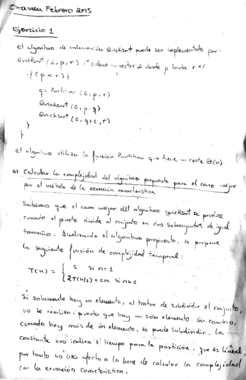 Examen Febrero 2015
Ejercicio 1
El algoritmo de ordenación Quicksort puede ser implementado por:
Quicksort (A, p, r) /* Ordena un vector A desde p hasta r */
if (p < r) {
q = Partition (A, p, r)
Quicksort (A, p, q)
Quicksort (A, q+1, r)
}
}
El algoritmo utiliza la función Partition que tiene un coste Θ(n)
a) Calcular la complejidad del algoritmo propuesto para el caso mejor
por el método de la ecuación característica
Sabemos que el caso mejor del algoritmo Quicksort se produce
cuando el pivote divide al conjunto en dos subconjuntos de igual
tamaño. Analizando el algoritmo propuesto, se propone
la siguiente función de complejidad temporal:
T(n) = { 1 si n = 1
2T(n/2) + cn si n > 1
Si solamente hay un elemento, al tratar de subdividir el conjunto,
no se realiza, puesto que hay un solo elemento. Sin embargo,
cuando hay más de un elemento, se puede subdividir. La
constante nos indica el tiempo para la partición, que es lineal
por tanto no afecta a la hora de calcular la complejidad
con la ecuación característica.